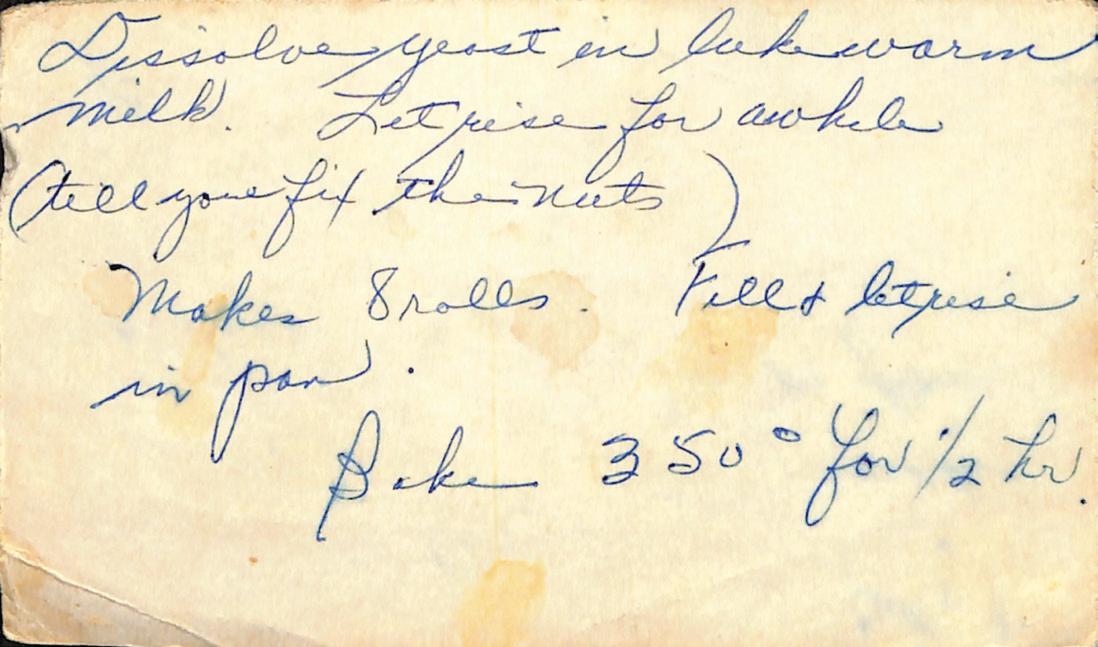 Dissolve yeast in lukewarm
milk. Let rise for awhile
(till you fix the nuts)
Makes 8 rolls. Fill & let rise
in pan.
Bake 350° for 1/2 hr.